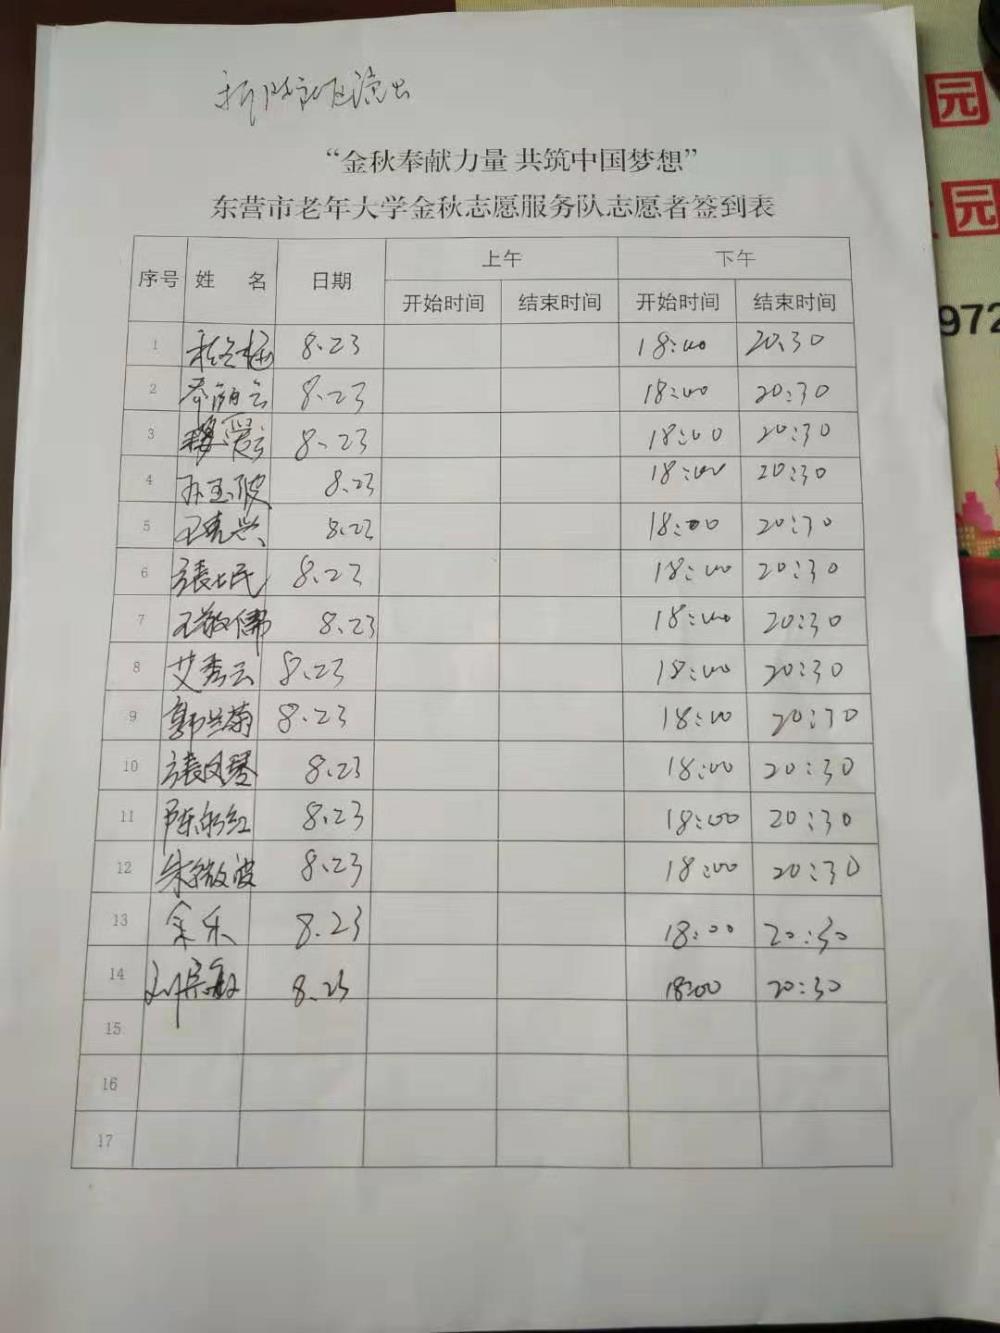 演出
“金秋奉献力量 共筑中国梦想”
东营市老年大学金秋志愿服务队志愿者签到表
序号 姓 名 日期 上午 下午
开始时间 结束时间 开始时间 结束时间
1 8.23 18:00 20:30
2 8.23 18:00 20:30
3 8.23 18:00 20:30
4 孙玉波 8.23 18:00 20:30
5 8.23 18:00 20:30
6 张士民 8.23 18:00 20:30
7 王敬儒 8.23 18:00 20:30
8 艾秀云 8.23 18:00 20:30
9 郭兰菊 8.23 18:00 20:30
10 张凤琴 8.23 18:00 20:30
11 8.23 18:00 20:30
12 朱微波 8.23 18:00 20:30
13 8.23 18:00 20:30
14 8.23 18:00 20:30
15
16
17
元
元
972